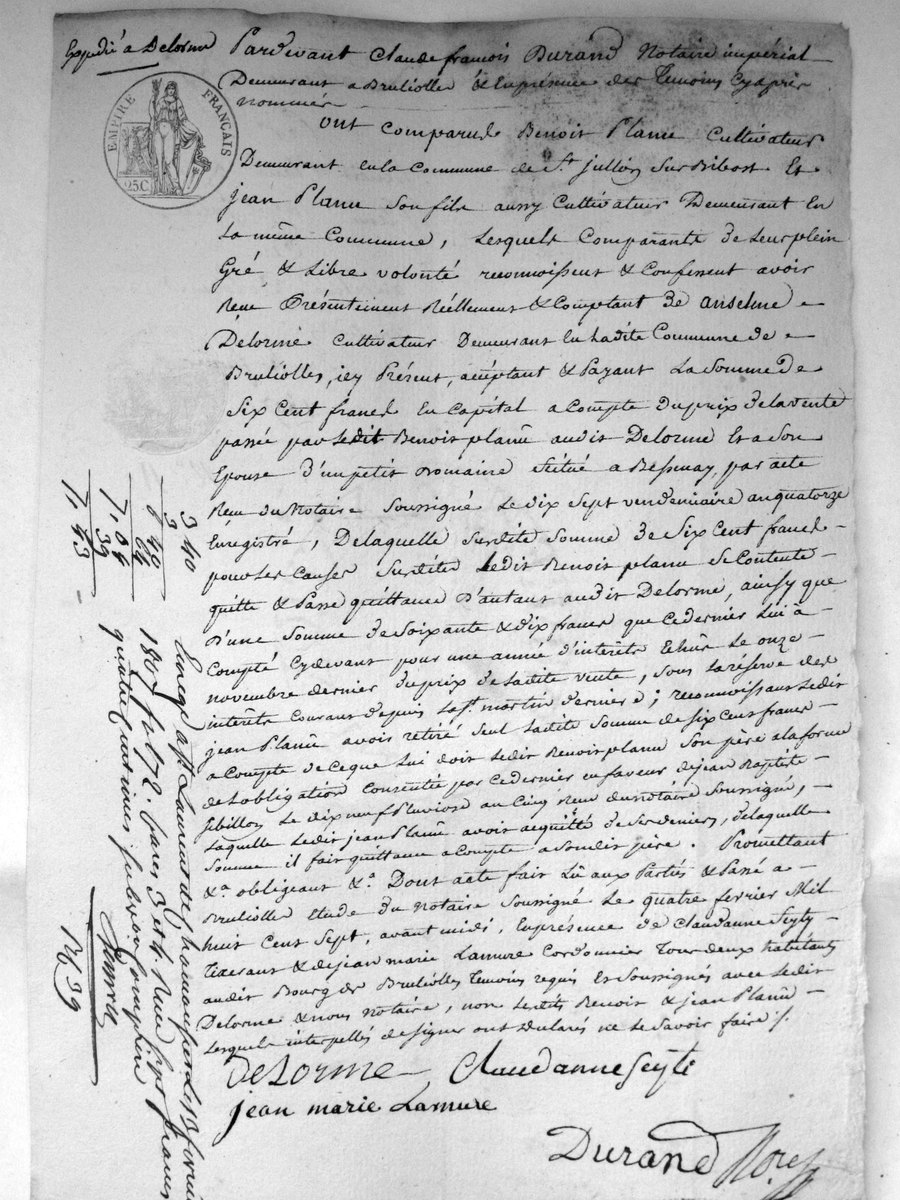 Expedié a Delorme
EMPIRE FRANÇAIS
25C
Pardevant Claude françois Durand Notaire impérial
Demeurant a Brulliolle & En présence des temoins Cy après
nommés
ont Comparu Benoit Planu Cultivateur
Demeurant en la Commune de St. jullien sur Bibost Et
jean Planu son fils aussy Cultivateur Demeurant En
la même Commune, Lesquels Comparants de leur plein
Gré & Libre volonté reconnoissent & Confessent avoir
Reçu Présentement Réellement & Comptant De anselme
Delorme Cultivateur Demeurant En ladite Commune de
Brullioles, icy Présent, acceptant & Payant La Somme de
Six Cent francs En Capital a Compte du prix de la vente
passée par ledit Benoit planu audit Delorme Et a Son
Epouse d'un petit Domaine Scitué a Bessenay, par acte
Reçu du Notaire Soussigné Le dix Sept vendemiaire an quatorze
Enregistré, De laquelle Susdite Somme de Six Cent francs
pour les Causes Susdites Ledit Benoit planu Se Contente
quitte & Passe quittance D'autant audit Delorme, ainsy que
D'une Somme de Soixante & dix francs que Ce dernier Lui à
Compté Cydevant pour une année d'intérêts Echûe Le onze
novembre dernier du prix de ladite vente, Sous la réserve des
intérêts Courants depuis la St. martin dernière; reconnoissant Ledit
jean Planu avoir retiré Seul ladite Somme de Six Cent francs
a Compte de Ce que Lui doit Ledit Benoit planu Son père a la forme
de l'obligation Consentie par Ce dernier en faveur de jean Baptiste
Le dix neuf Pluviose an Cinq Reçu du notaire Soussigné,
Laquelle Ledit jean Planu avoir acquitté de Ses deniers, de laquelle
Somme il fait quittance a Compte a Sondit père. Promettant
&a. obligeant &a. Dont acte fait Lû aux Parties & Passé a
Brulliolle Etude du Notaire Soussigné Le quatre fevrier Mil
huit Cent Sept, avant midi, En présence de Claudanne Seyty
Tixerant & de jean marie Lamure Cordonnier Tous deux habitants
audit Bourg de Brullioles Temoins requis Et Soussignés avec Ledit
Delorme & nous Notaire, non Lesdits Benoit & jean Planu
Lesquels interpellés de signer ont déclarés ne le Savoir faire ./.
Delorme Claudanne Seyti
jean marie Lamure
Durand Nore
3 40
3
6 40
64
7,04
39
7,43
Enregé. a St Laurent de Chamousset Le 13 fevrier
1807 fol. 72. Cases 3 et 4. Reçu Sept francs
quatre Centimes Subvon. Comprise
39